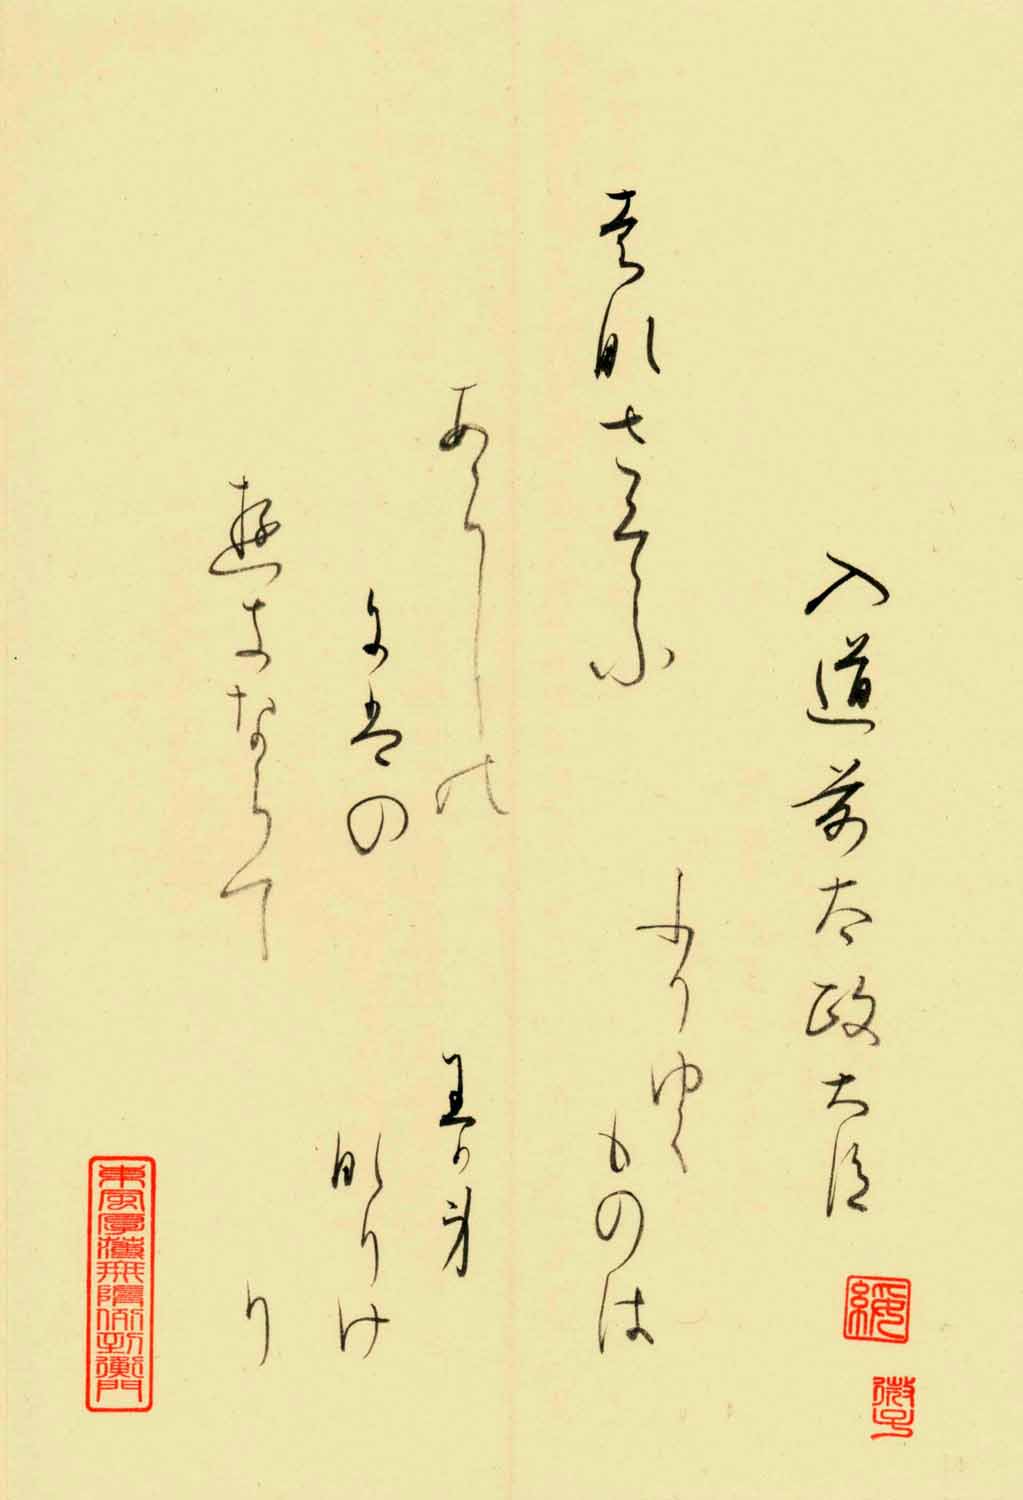 入道前太政大臣
はなさそふ
あらしの
にはの
ゆきならて
ふりゆく
ものは
わか身
なりけ
り